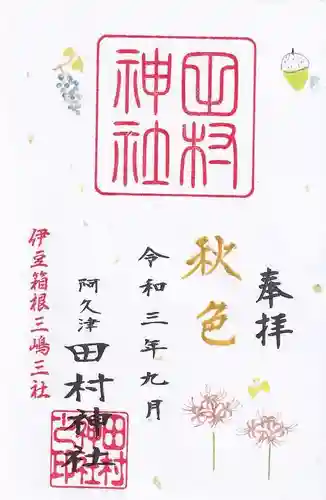 田村
神社
奉拝
秋色
令和三年九月
阿久津
田村神社
伊豆箱根三嶋三社
田村
神社
之印